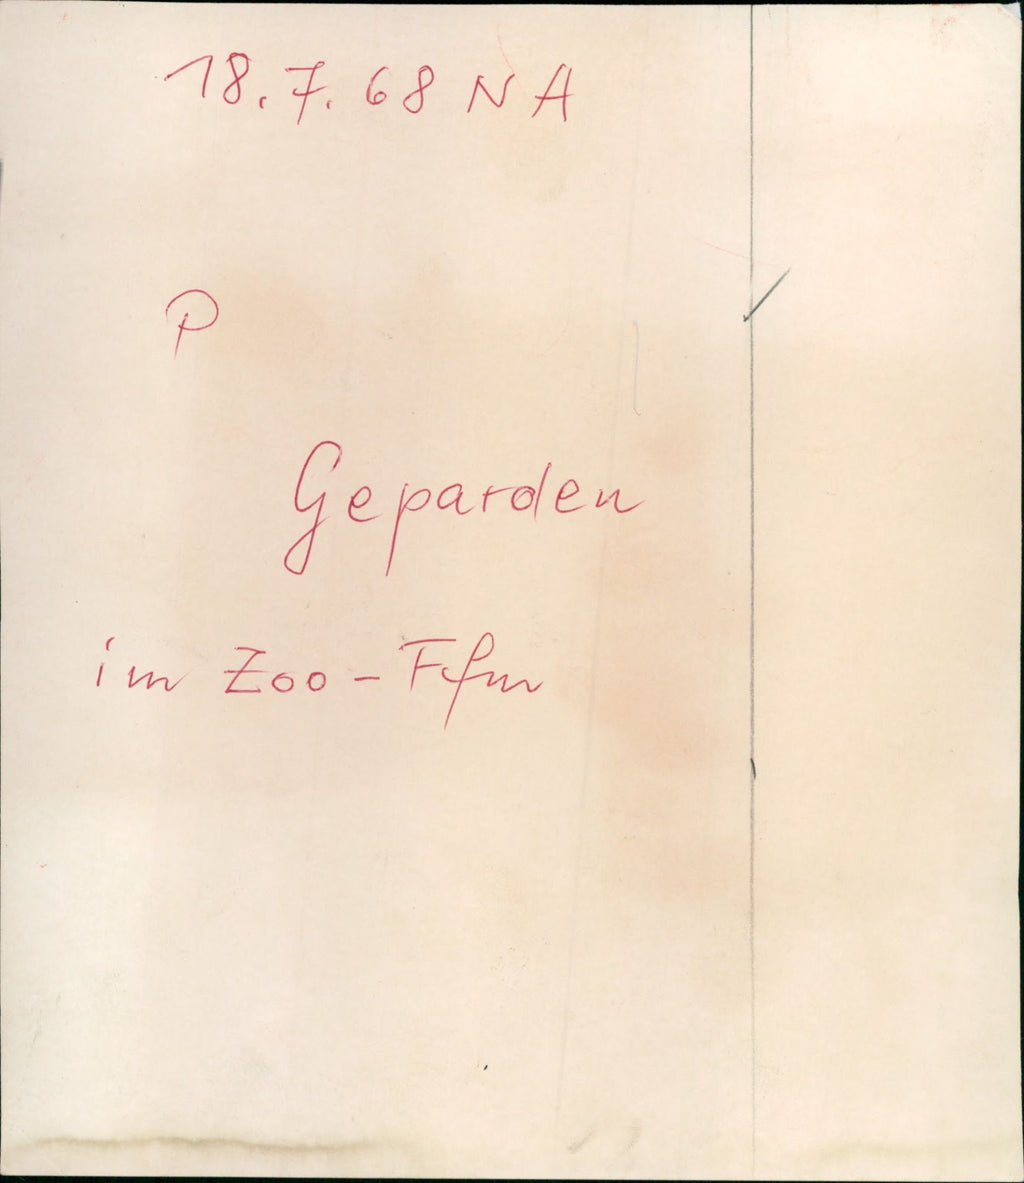 18.7.68 NA
P
Geparden
im Zoo-Ffm